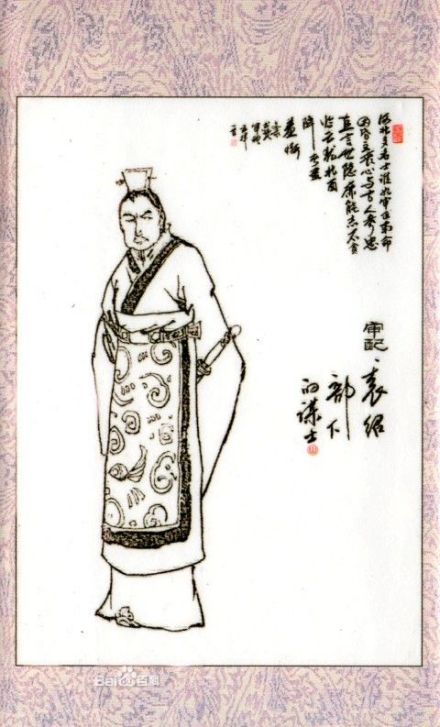 河北多名士谁如审正南命
因昏主丧心与古人参忠
直言无隐廉能志不贪
临亡犹北面
降者尽
羞惭
审配、袁绍
部下
的谋士
Bai 百科